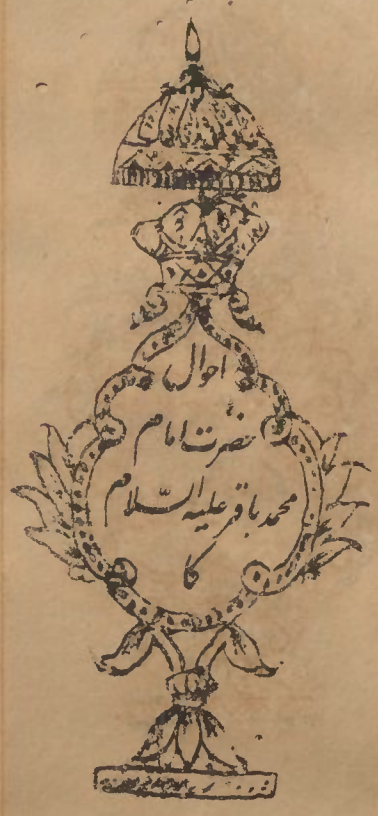 احوال
حضرت امام
محمد باقر علیہ السّلام
کا